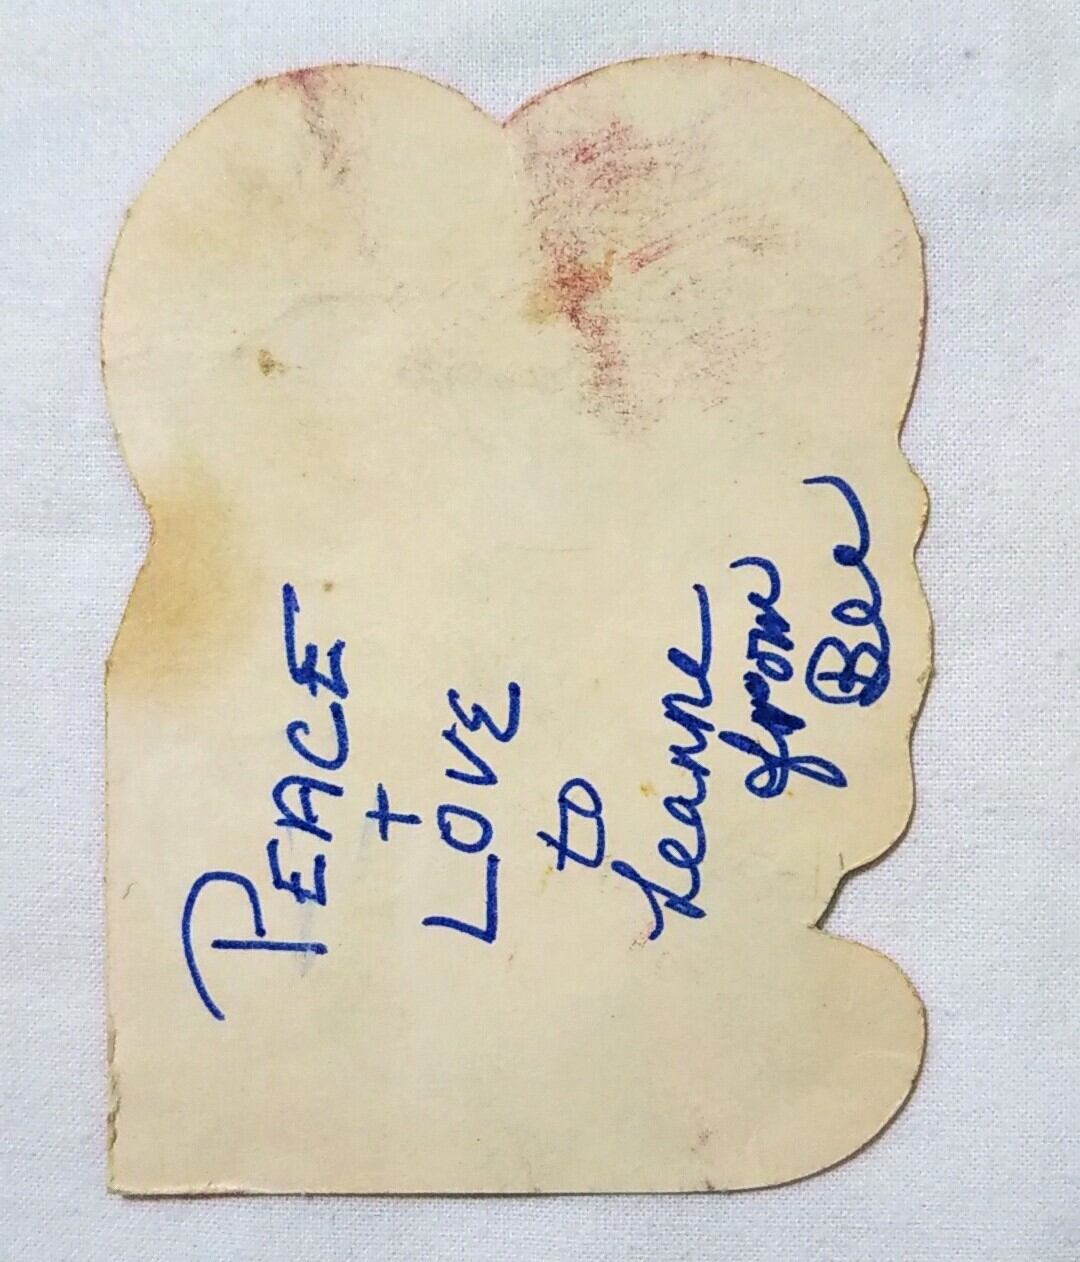 PEACE
+
LOVE
to
Leanne
from
Bee